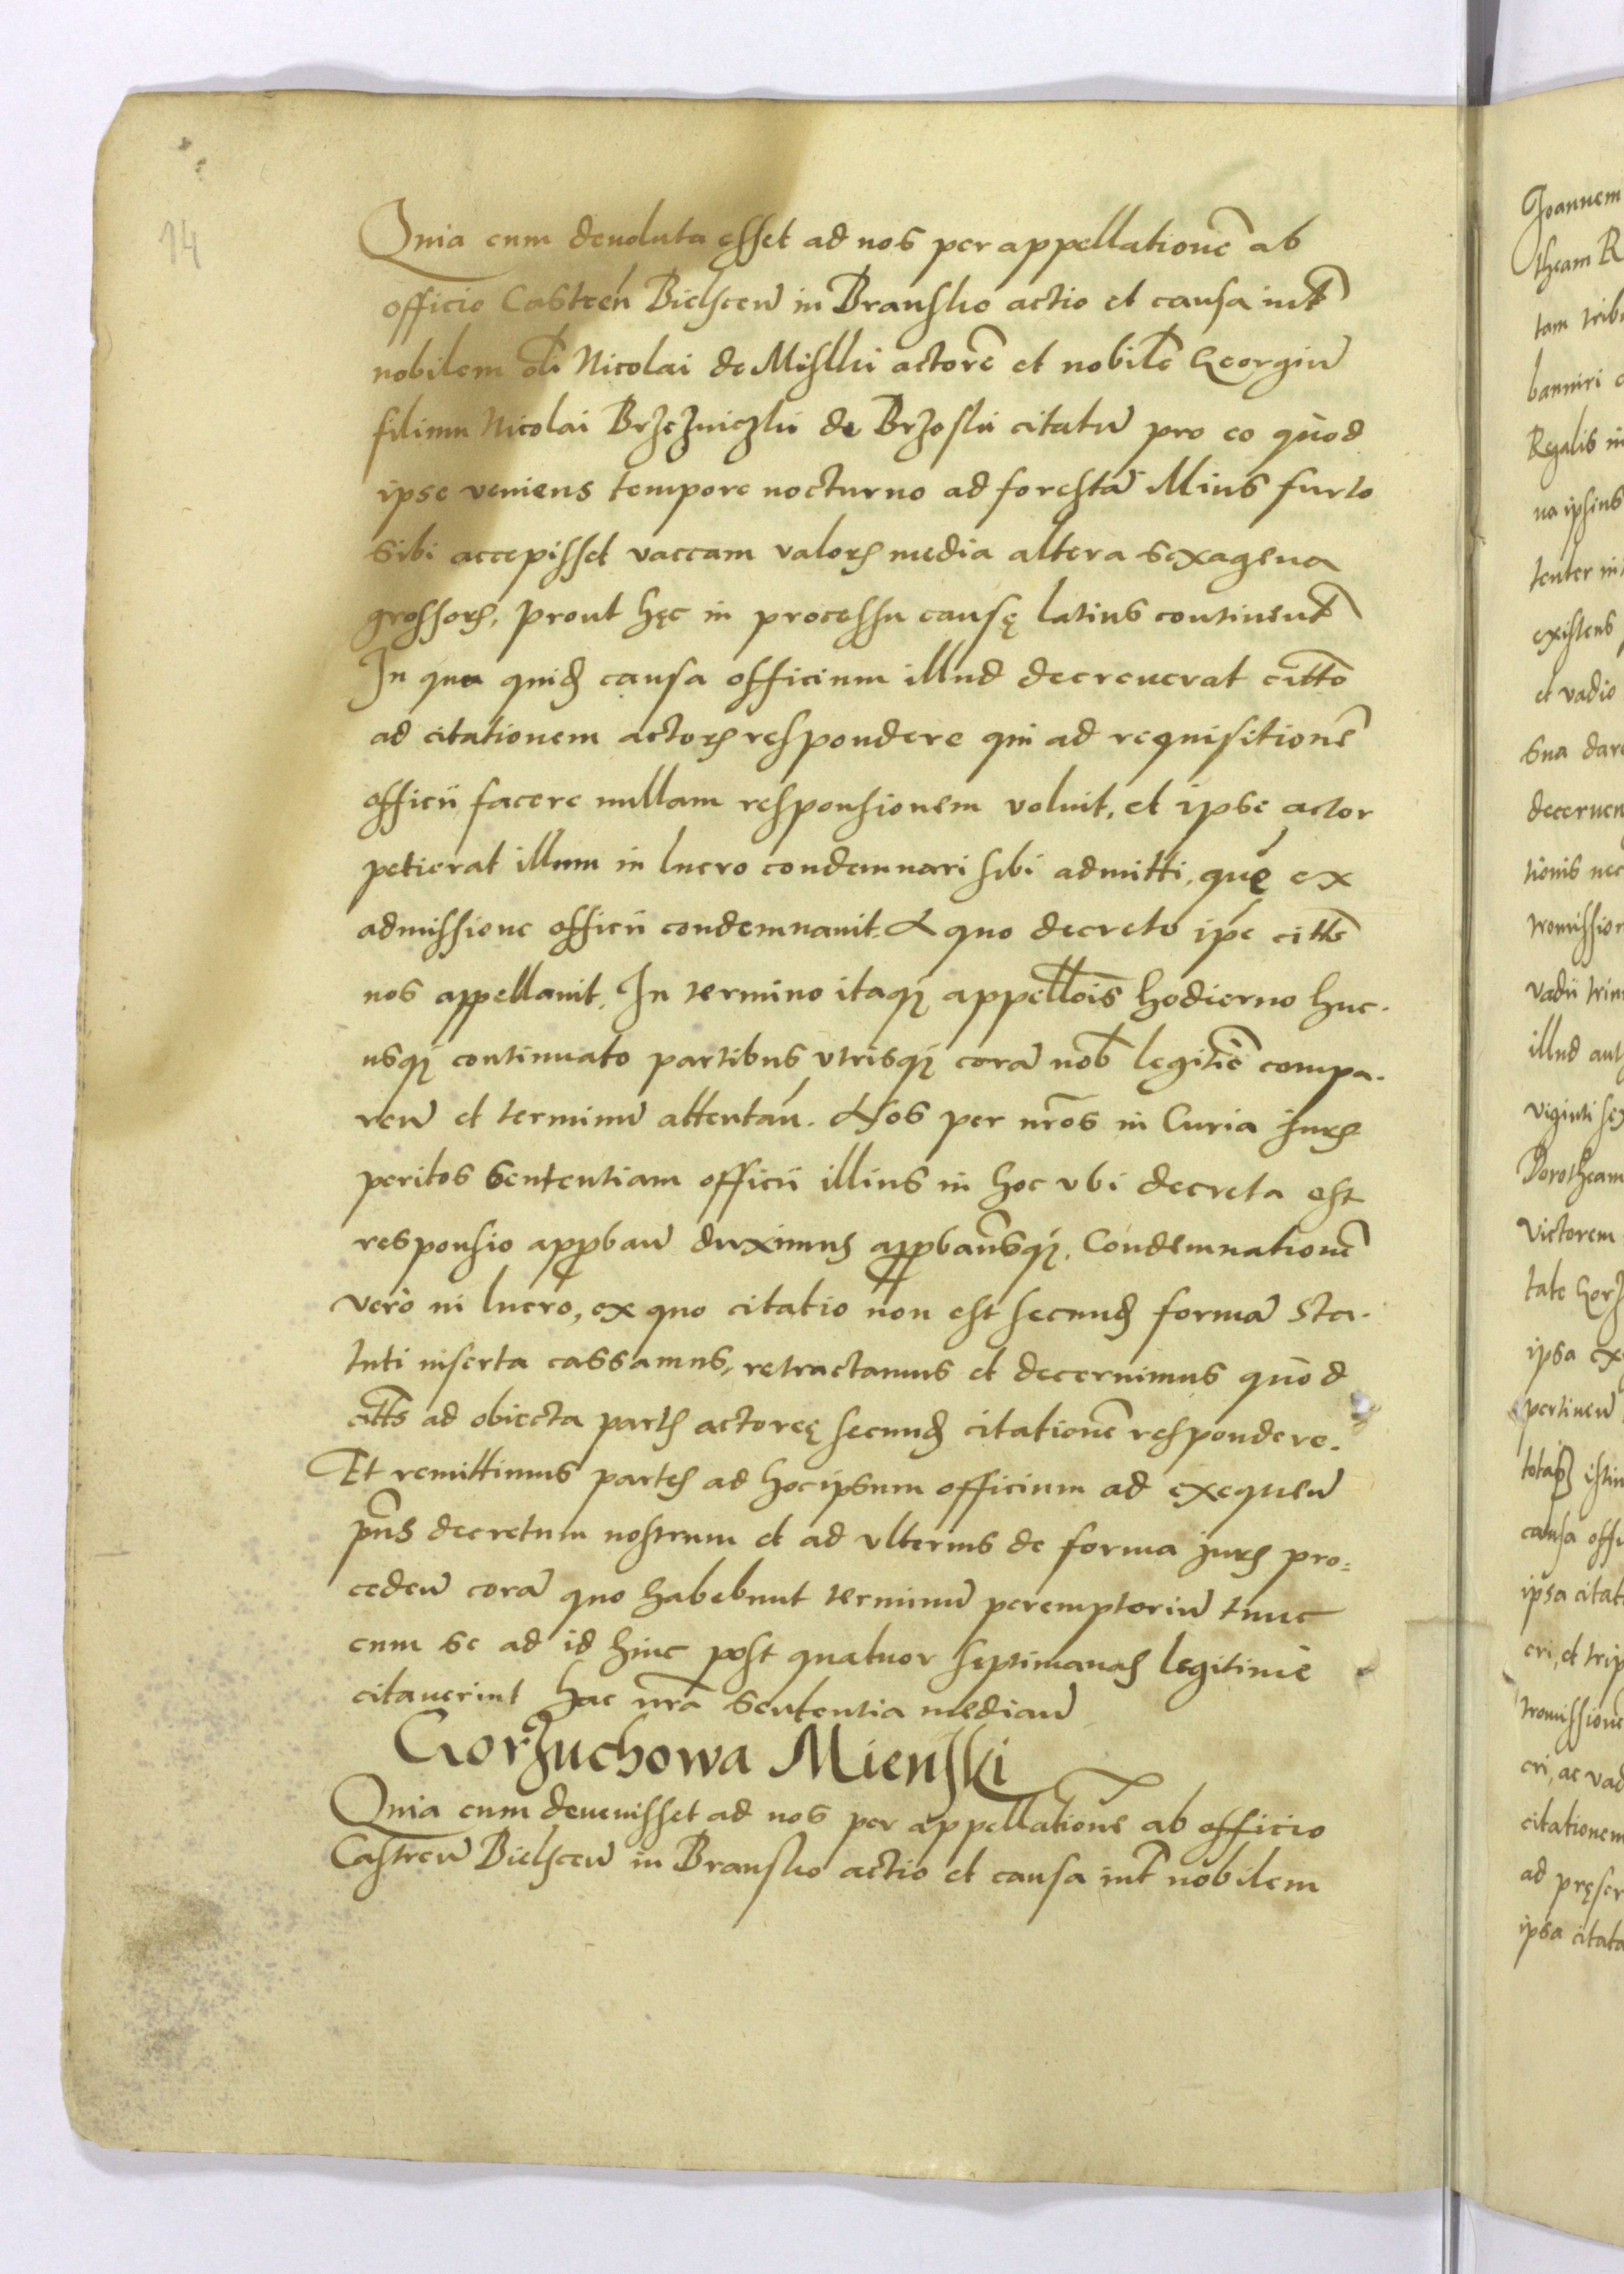 14
Quia cum deuoluta esset ad nos per appellationē ab
officio Castren̄ Bielscen̄ in Bransko actio et causa int̄
nobilem oli Nicolai de Miskki actorē et nobilē Georgiū
filium Nicolai Brzezniczki de Brzoski citatū pro eo quòd
ipse veniens tempore nocturno ad forestā illius furto
sibi accepisset vaccam valoris media altera sexagena
grossorꝝ, prout hęc in processu causę latius continent̄
In qua quidꝫ causa officium illud decreuerat citto
ad citationem actoris respondere qui ad requisitionē
officii facere nullam responsionem voluit, et ipse actor
petierat illum in lucro condemnari sibi admitti, quē ex
admissione officii condemnauit. A quo decreto ip̄e citts̄
nos appellauit. In termino itaqꝫ appellōis hodierno huc.
usqꝫ continuato partibus vtrisqꝫ corā nob̄ legitīe compa.
ren̄ et terminū attentan̄. Nos per nr̄os in Curia juris
peritos sententiam officii illius in hoc vbi decreta est
responsio approban̄ duximus approban̄sqꝫ. Condemnationē
verò in lucro, ex quo citatio non est secundꝫ formā sta.
tuti inserta cassamus, retractamus et decernimus quòd
citts̄ ad obiecta partis actoreę secundꝫ citationē respondere.
Et remittimus partes ad hoc ipsum officium ad exequen̄
pn̄s decretum nostrum et ad vlterius de forma juris pro=
ceden̄ corā quo habebunt terminū peremptoriū tunc
cum se ad id hinc post quatuor septimanas legitimè
citauerint hac nr̄a sententia median̄
Gorzuchowa Mienski
Quia cum deuenisset ad nos per appellationē ab officio
Castren̄ Bielscen̄ in Bransko actio et causa int̄ nobilem
Joannem
theam R
tam trib
banniri
Regalis in
na ipsius
tenter in
existens
et vadio
sua dar
decernen
tionis nec
tromission
vadii trin
illud aut
viginti sex
Dorotheam
victorem
tate
ipsa ex
pertinen̄
istin
causa offi
ipsa citat
cri, et trip
tromissione
cri, ac vad
citationem
ad pręser
ipsa citata